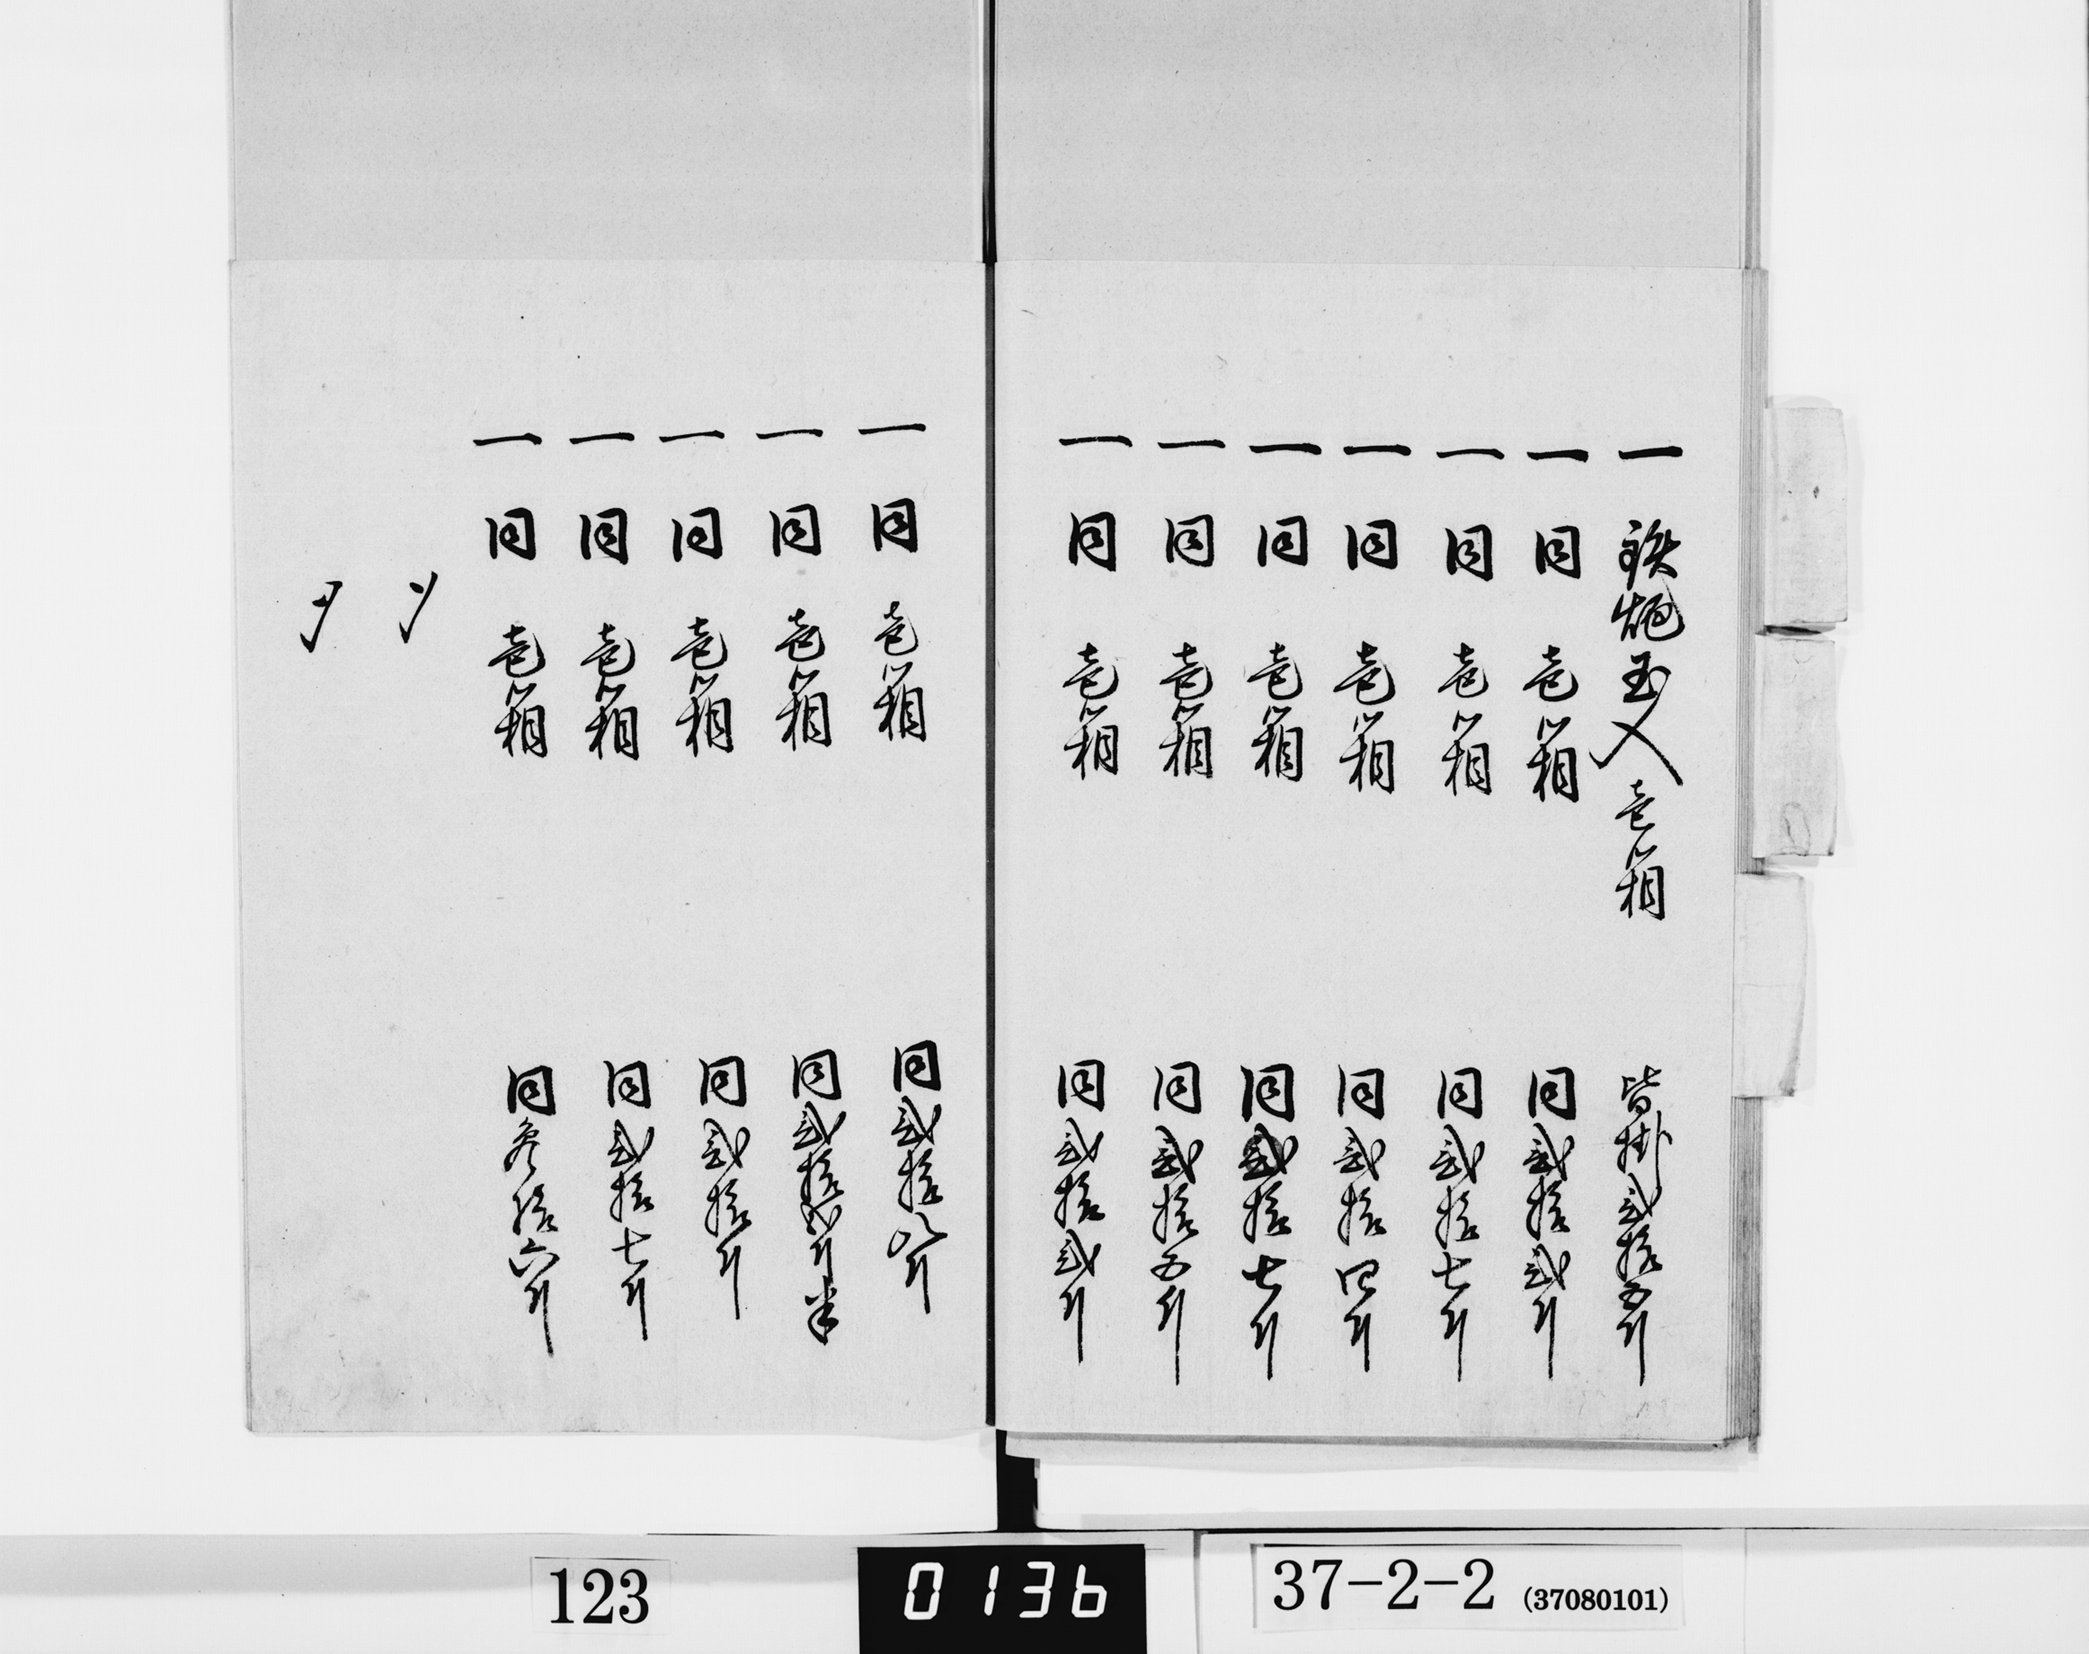 一 鉄炮玉入壱箱 皆掛弐拾五斤
一 同 壱箱 同弐拾弐斤
一 同 壱箱 同弐拾七斤
一 同 壱箱 同弐拾四斤
一 同 壱箱 同弐拾七斤
一 同 壱箱 同弐拾五斤
一 同 壱箱 同弐拾弐斤
一 同 壱箱 同弐拾八斤
一 同 壱箱 同弐拾斤半
一 同 壱箱 同弐拾斤
一 同 壱箱 同弐拾七斤
一 同 壱箱 同参拾六斤
123
0136
37-2-2 (37080101)